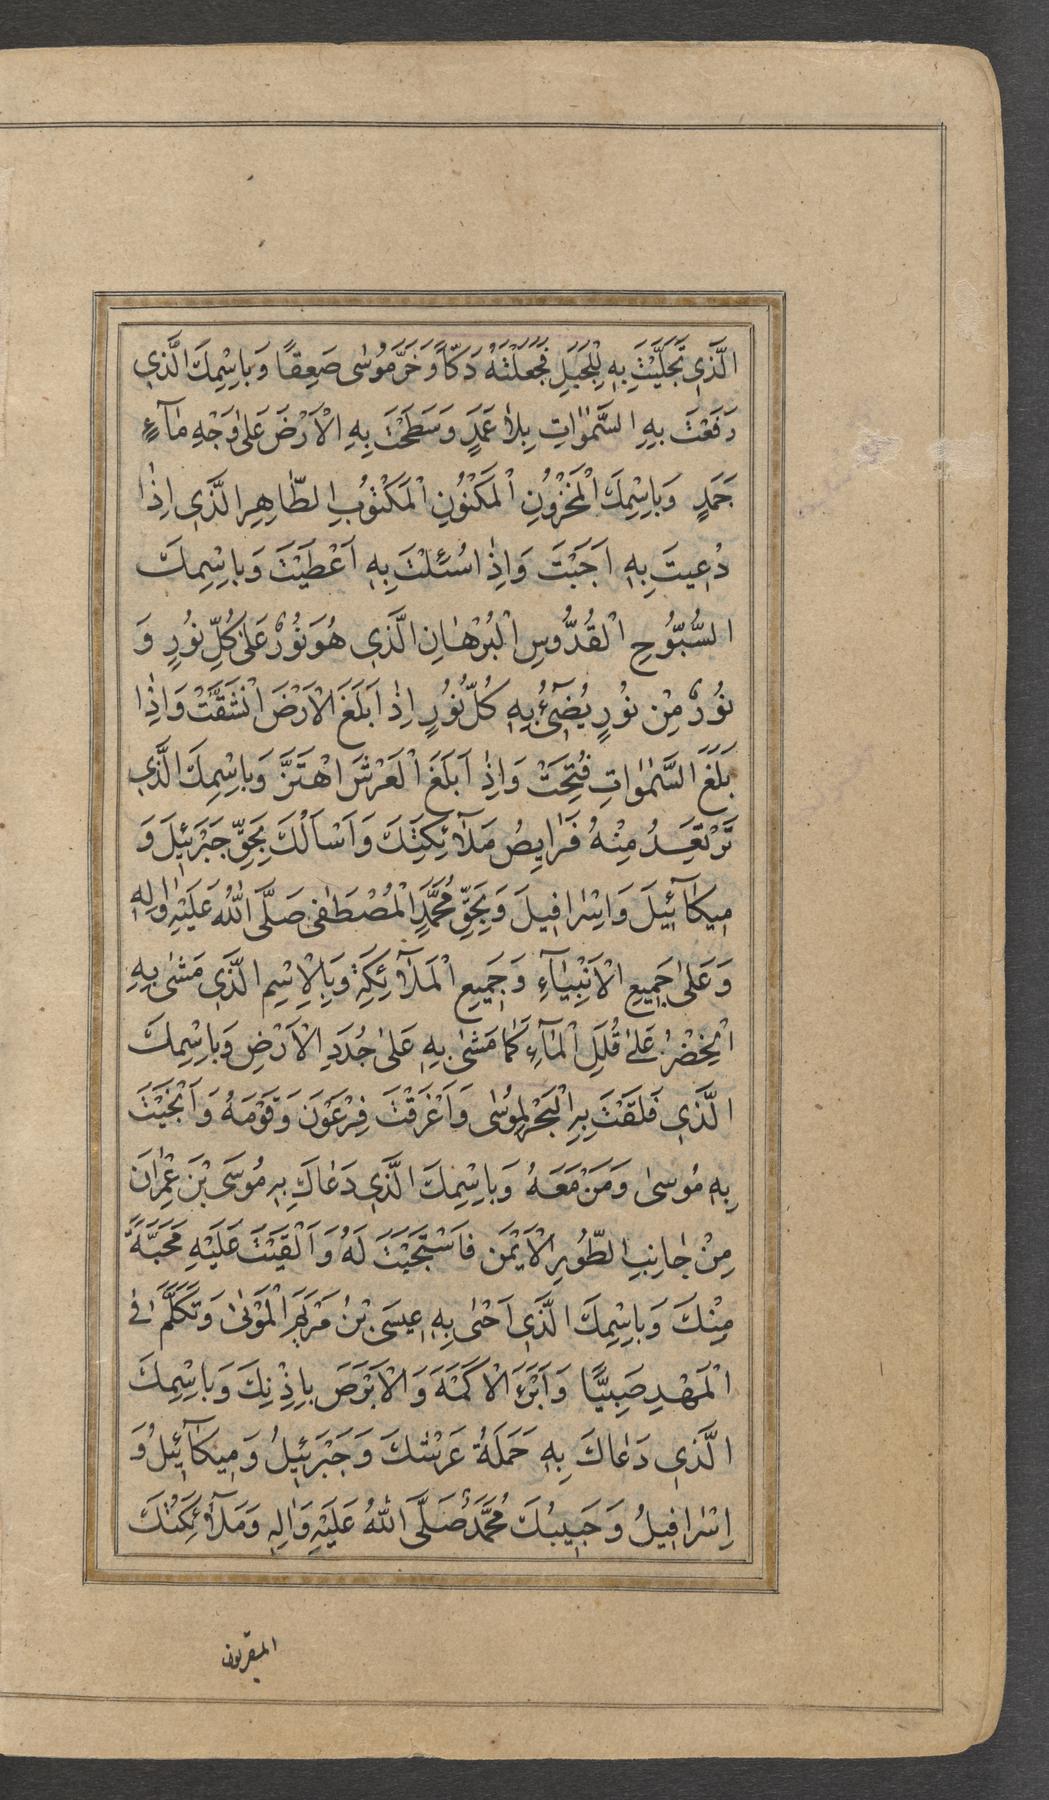 الَّذِي تَجَلَّيْتَ بِهِ لِلْجَبَلِ فَجَعَلْتَهُ دَكّاً وَخَرَّ مُوسٰى صَعِقًا وَبِاسْمِكَ الَّذِي
رَفَعْتَ بِهِ السَّمٰوَاتِ بِلَا عَمَدٍ وَسَطَحْتَ بِهِ الْاَرْضَ عَلٰى وَجْهِ مَآءٍ
جَمَدٍ وَبِاسْمِكَ الْمَخْزُونِ الْمَكْنُونِ الْمَكْتُوبِ الطَّاهِرِ الَّذِي اِذَا
دُعِيتَ بِهِ اَجَبْتَ وَاِذَا سُئِلْتَ بِهِ اَعْطَيْتَ وَبِاسْمِكَ
السُّبُّوحِ الْقُدُّوسِ الْبُرْهَانِ الَّذِي هُوَ نُورٌ عَلٰى كُلِّ نُورٍ وَ
نُورٌ مِنْ نُورٍ يُضِيٓءُ بِهِ كُلُّ نُورٍ اِذَا بَلَغَ الْاَرْضَ انْشَقَّتْ وَاِذَا
بَلَغَ السَّمٰوَاتِ فُتِحَتْ وَاِذَا بَلَغَ الْعَرْشَ اهْتَزَّ وَبِاسْمِكَ الَّذِي
تَرْتَعِدُ مِنْهُ فَرَايِصُ مَلٰٓائِكَتِكَ وَاَسْاَلُكَ بِحَقِّ جَبْرَئِيلَ وَ
مِيكَآئِيلَ وَاِسْرَافِيلَ وَبِحَقِّ مُحَمَّدٍ الْمُصْطَفٰى صَلَّى اللّٰهُ عَلَيْهِ وَاٰلِهِ
وَعَلٰى جَمِيعِ الْاَنْبِيَآءِ وَجَمِيعِ الْمَلٰٓائِكَةِ وَبِالْاِسْمِ الَّذِي مَشٰى بِهِ
الْخِضْرُ عَلٰى قُلَلِ الْمَآءِ كَمَا مَشٰى بِهِ عَلٰى جُدَدِ الْاَرْضِ وَبِاسْمِكَ
الَّذِي فَلَقْتَ بِهِ الْبَحْرَ لِمُوسٰى وَاَغْرَقْتَ فِرْعَوْنَ وَقَوْمَهُ وَاَنْجَيْتَ
بِهِ مُوسٰى وَمَنْ مَعَهُ وَبِاسْمِكَ الَّذِي دَعَاكَ بِهِ مُوسَى بْنُ عِمْرَانَ
مِنْ جَانِبِ الطُّورِ الْاَيْمَنِ فَاسْتَجَبْتَ لَهُ وَاَلْقَيْتَ عَلَيْهِ مَحَبَّةً
مِنْكَ وَبِاسْمِكَ الَّذِي اَحْيٰى بِهِ عِيسَى بْنُ مَرْيَمَ الْمَوْتٰى وَتَكَلَّمَ فِي
الْمَهْدِ صَبِيًّا وَاَبْرَءَ الْاَكْمَهَ وَالْاَبْرَصَ بِاِذْنِكَ وَبِاسْمِكَ
الَّذِي دَعَاكَ بِهِ حَمَلَةُ عَرْشِكَ وَجَبْرَئِيلُ وَمِيكَآئِيلُ وَ
اِسْرَافِيلُ وَحَبِيبُكَ مُحَمَّدٌ صَلَّى اللّٰهُ عَلَيْهِ وَاٰلِهِ وَمَلٰٓائِكَتُكَ
المقربون